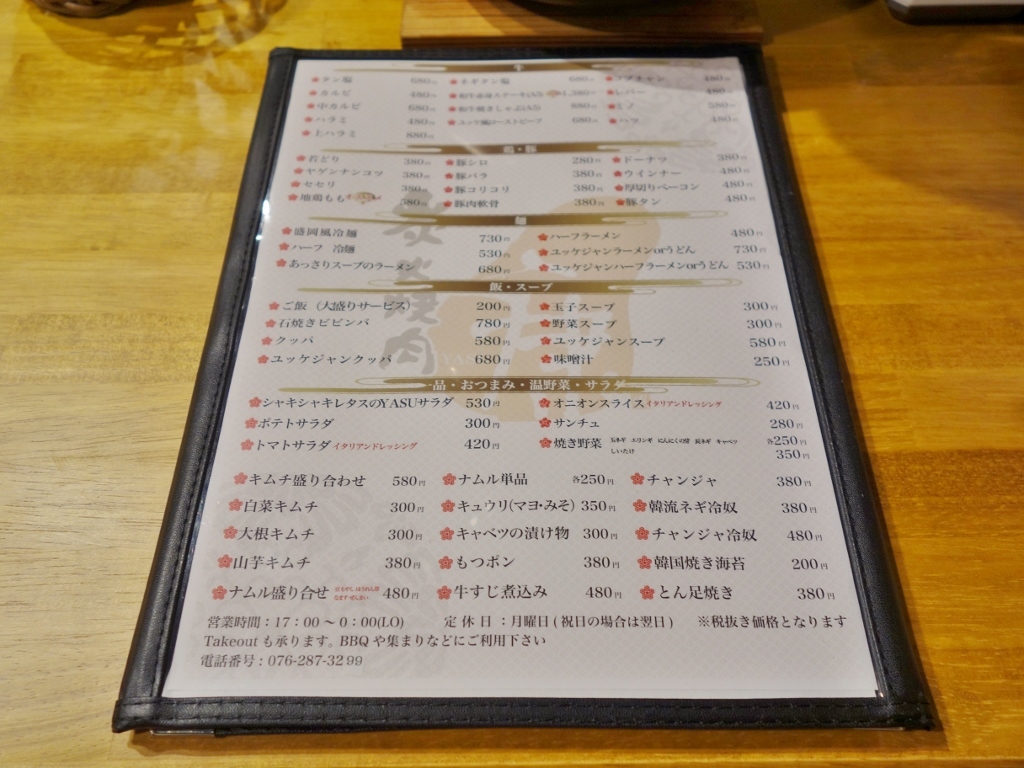 牛
タン塩 680円 ネギタン塩 680円 コプチャン 480円
カルビ 480円 和牛赤身ステーキ(A5) 1,380円 レバー 480円
中カルビ 680円 和牛焼きしゃぶ(A5) 880円 ミノ 580円
ハラミ 480円 ユッケ風ローストビーフ 680円 ハツ 480円
上ハラミ 880円
鶏・豚
若どり 380円 豚シロ 280円 ドーナツ 380円
ヤゲンナンコツ 380円 豚バラ 380円 ウインナー 480円
セセリ 380円 豚コリコリ 380円 厚切りベーコン 480円
地鶏もも 580円 豚肉軟骨 380円 豚タン 480円
麺
盛岡風冷麺 730円 ハーフラーメン 480円
ハーフ 冷麺 530円 ユッケジャンラーメンorうどん 730円
あっさりスープのラーメン 680円 ユッケジャンハーフラーメンorうどん 530円
飯・スープ
ご飯（大盛りサービス） 200円 玉子スープ 300円
石焼きビビンバ 780円 野菜スープ 300円
クッパ 580円 ユッケジャンスープ 580円
ユッケジャンクッパ 680円 味噌汁 250円
一品・おつまみ・温野菜・サラダ
シャキシャキレタスのYASUサラダ 530円 オニオンスライス イタリアンドレッシング 420円
ポテトサラダ 300円 サンチュ 280円
トマトサラダ イタリアンドレッシング 420円 焼き野菜 玉ネギ エリンギ にんにくの芽 長ネギ キャベツ 各250円
しいたけ 350円
キムチ盛り合わせ 580円 ナムル単品 各250円 チャンジャ 380円
白菜キムチ 300円 キュウリ(マヨ・みそ) 350円 韓流ネギ冷奴 380円
大根キムチ 300円 キャベツの漬け物 300円 チャンジャ冷奴 480円
山芋キムチ 380円 もつポン 380円 韓国焼き海苔 200円
ナムル盛り合せ 豆もやし ほうれん草 なます ぜんまい 480円 牛すじ煮込み 480円 とん足焼き 380円
営業時間：17：00～0：00(LO) 定休日：月曜日(祝日の場合は翌日) ※税抜き価格となります
Takeoutも承ります。BBQや集まりなどにご利用下さい
電話番号：076-287-3299
炭火焼肉